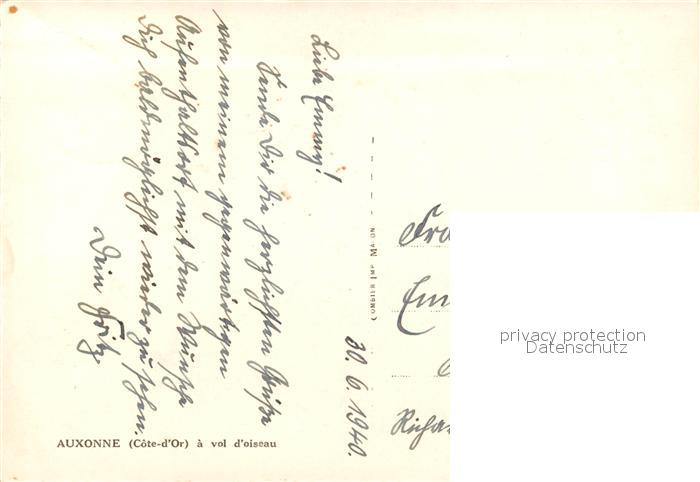 Liebe Emmy!
Sende Dir die herzlichsten Grüße
von meinem gegenwärtigen
Aufenthaltsort mit dem Wunsche
Dich baldmöglichst wieder zu sehen.
Dein Fritz
30. 6. 1940.
AUXONNE (Côte-d'Or) à vol d'oiseau
COMBIER IMP. MACON
Richa
privacy protection
Datenschutz